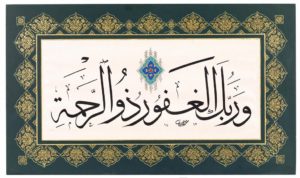 وَرَبُّكَ الْغَفُورُ ذُو الرَّحْمَةِ